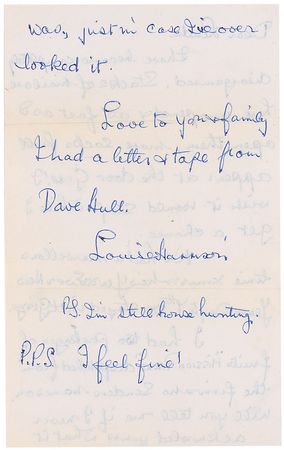 was, just in case I've over
looked it.
Love to you & family
I had a letter & tape from
Dave Hull.
Louise Harrison
P.S. I'm still house hunting.
P.P.S. I feel fine!